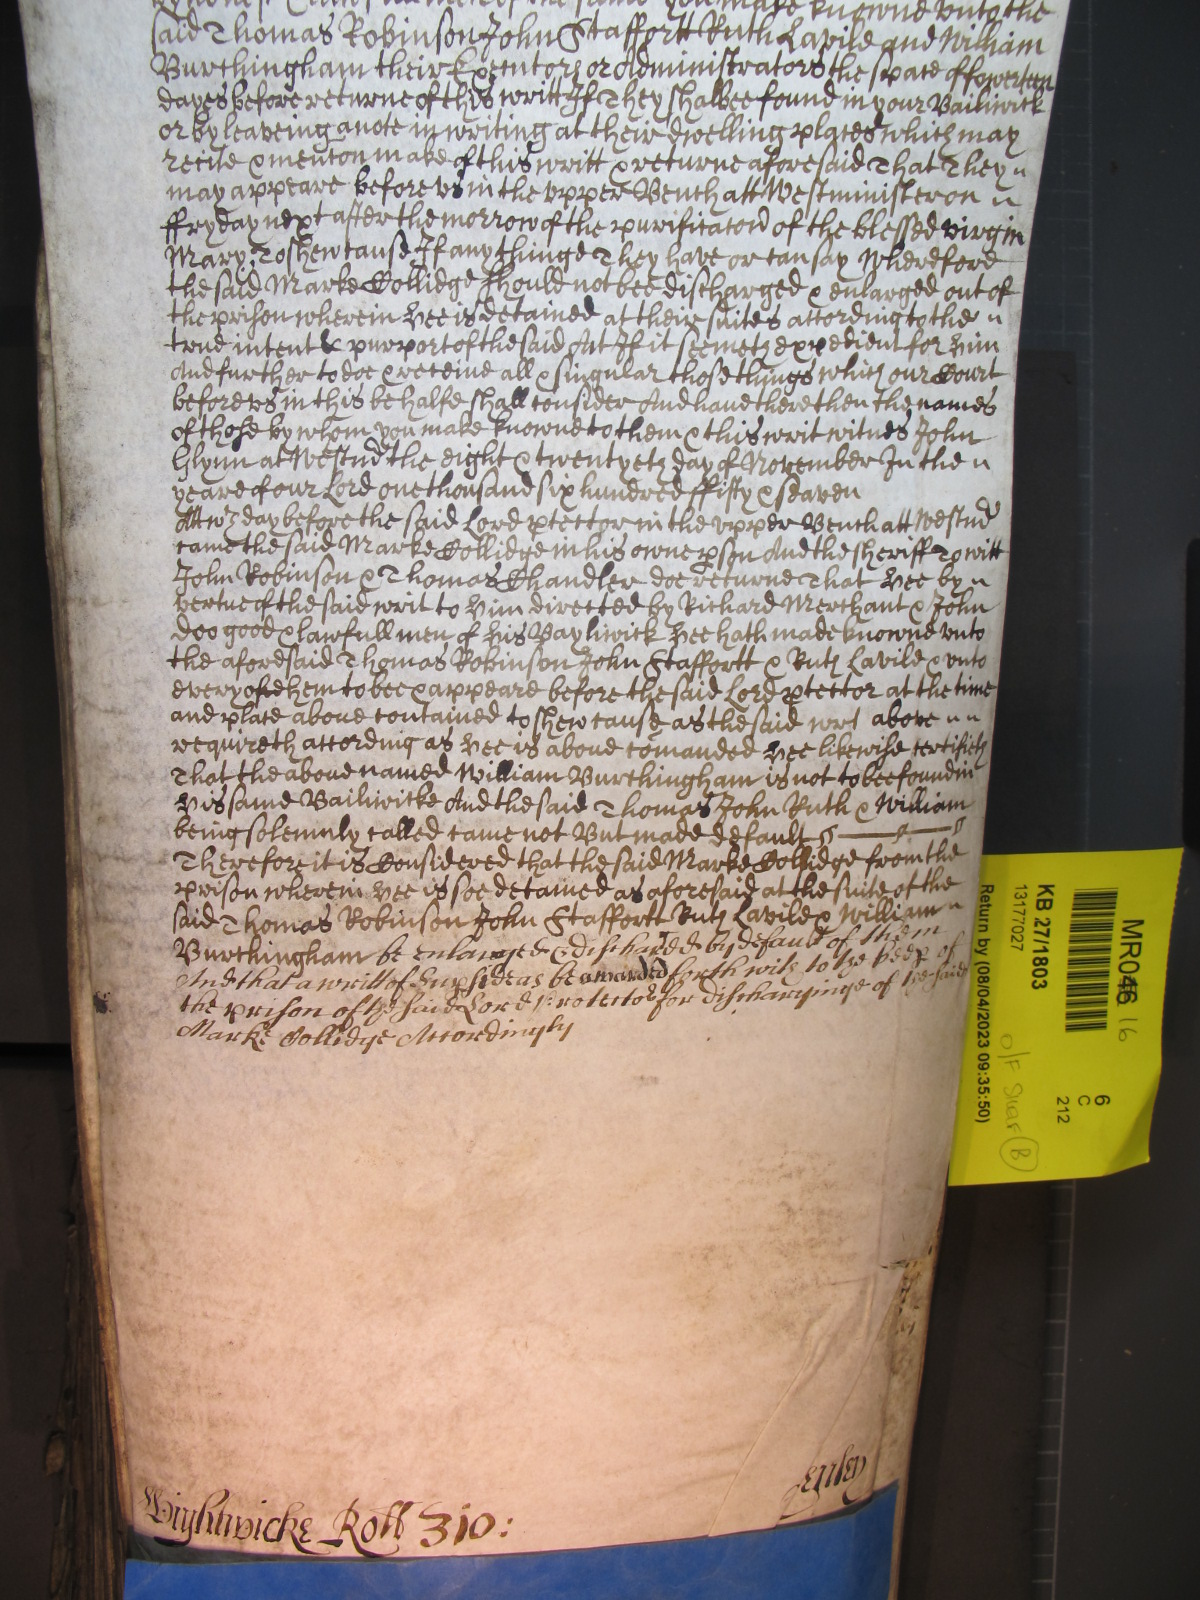 said Thomas Robinson John Staffortt Ruth Lavild and William
Burchingham their Executors or Administrators the space of fowerteen
dayes before returne of this writt If They shalbee found in your Bailiwick
or by leaveing a note in writing at their dwelling places which may
recite & mencon make of this writt & returne aforesaid That They
may appeare before us in the upper Bench att Westminister on
ffryday next after the morrow of the purificacon of the blessed virgin
Mary; To shew cause If any thinge They have or can say Wherefore
the said Marke Collidge should not bee discharged & enlarged out of
the prison wherein hee is detained at their suites according to the
true intent & purport of the said Act If it seemeth expedient for him
And further to doe & receive all & singular those things which our Court
before us in this behalfe shall consider And have there then the names
of those by whom you make knowne to them & this writ witnes John
Glynn at Westmr the eight & twentyeth day of November In the
yeare of our Lord one thousand six hundred ffifty & seaven
Att wch day before the said Lord ptector in the upper Bench att Westmr
came the said Marke Collidge in his owne pson And the sheriff To witt
John Robinson & Thomas Chandler doe returne That hee by
vertue of the said writ to him directed by Richard Merchant & John
Deo good & lawfull men of his Bayliwick hee hath made knowne unto
the aforesaid Thomas Robinson John Staffortt & Ruth Lavild & unto
every of them to bee & appeare before the said Lord ptector at the time
and place above contained to shew cause as the said writ above
requireth according as hee is above comanded hee likewise certifieth
That the above named William Burchingham is not to bee found in
his said Bailiwicke And the said Thomas John Ruth & William
being solemnly called came not But made default
Therefore it is Considered that the said Marke Collidge from the
prison wherein hee is soe detained as aforesaid at the suite of the
said Thomas Robinson John Staffortt Ruth Lavild & William
Burchingham be enlarged & discharged by default of them
And that a writt of Supsideas be awarded forthwith to the keep of
the prison of the said Lord Protector for discharginge of the said
Marke Collidge Accordingly
Wightwicke Roll 310:
MR046 16
KB 27/1803
13177027
Return by (08/04/2023 09:35:50)
6
C
212
B